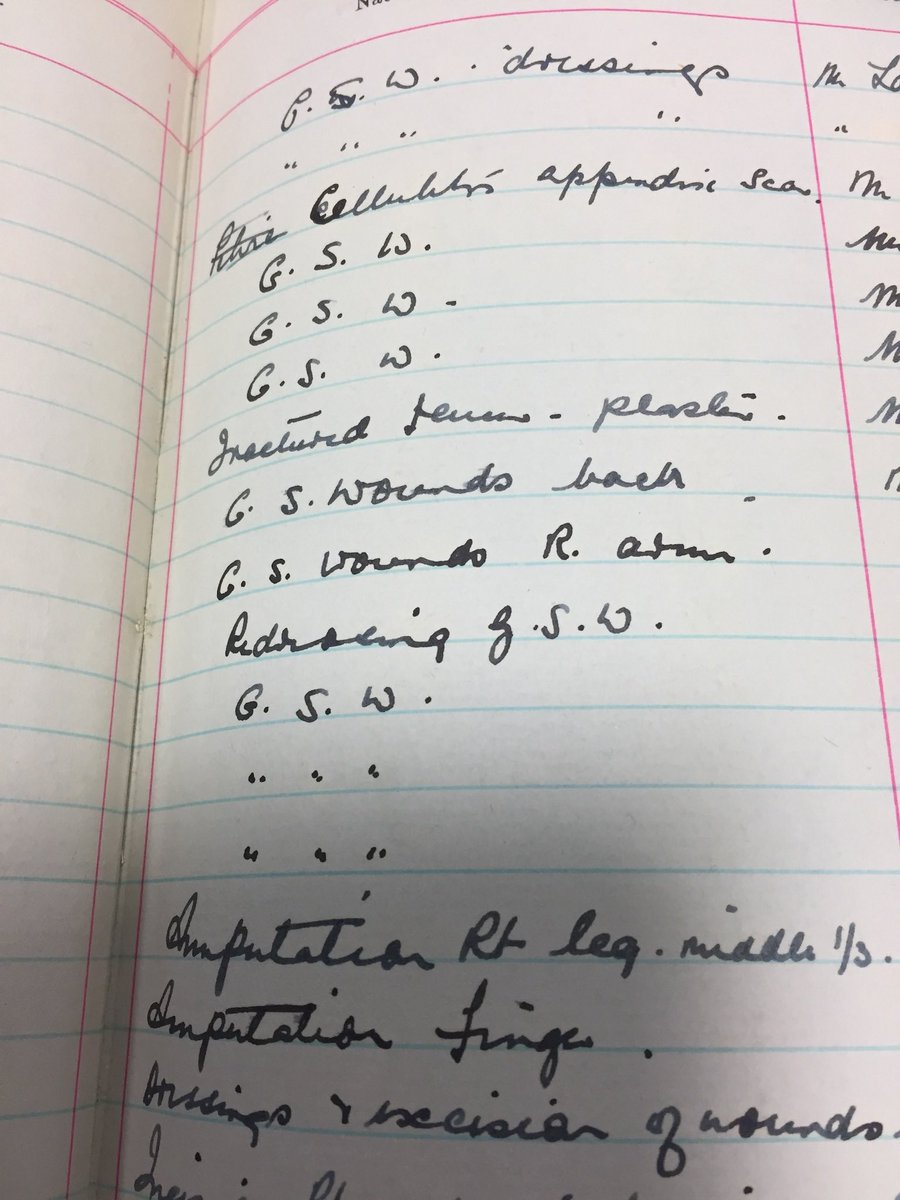 G. S. W. . dressings Mr
" " " " "
Cellulitis appendix scar. Mr
G. S. W.
G. S. W -
G. S. W.
Fractured Femur - plaster.
G. S. Wounds back
G. S. Wounds R. arm.
Redressing G.S.W.
G. S. W.
" " "
" " "
Amputation Rt leg. middle 1/3.
Amputation Finger.
Dressings & excision of wounds.